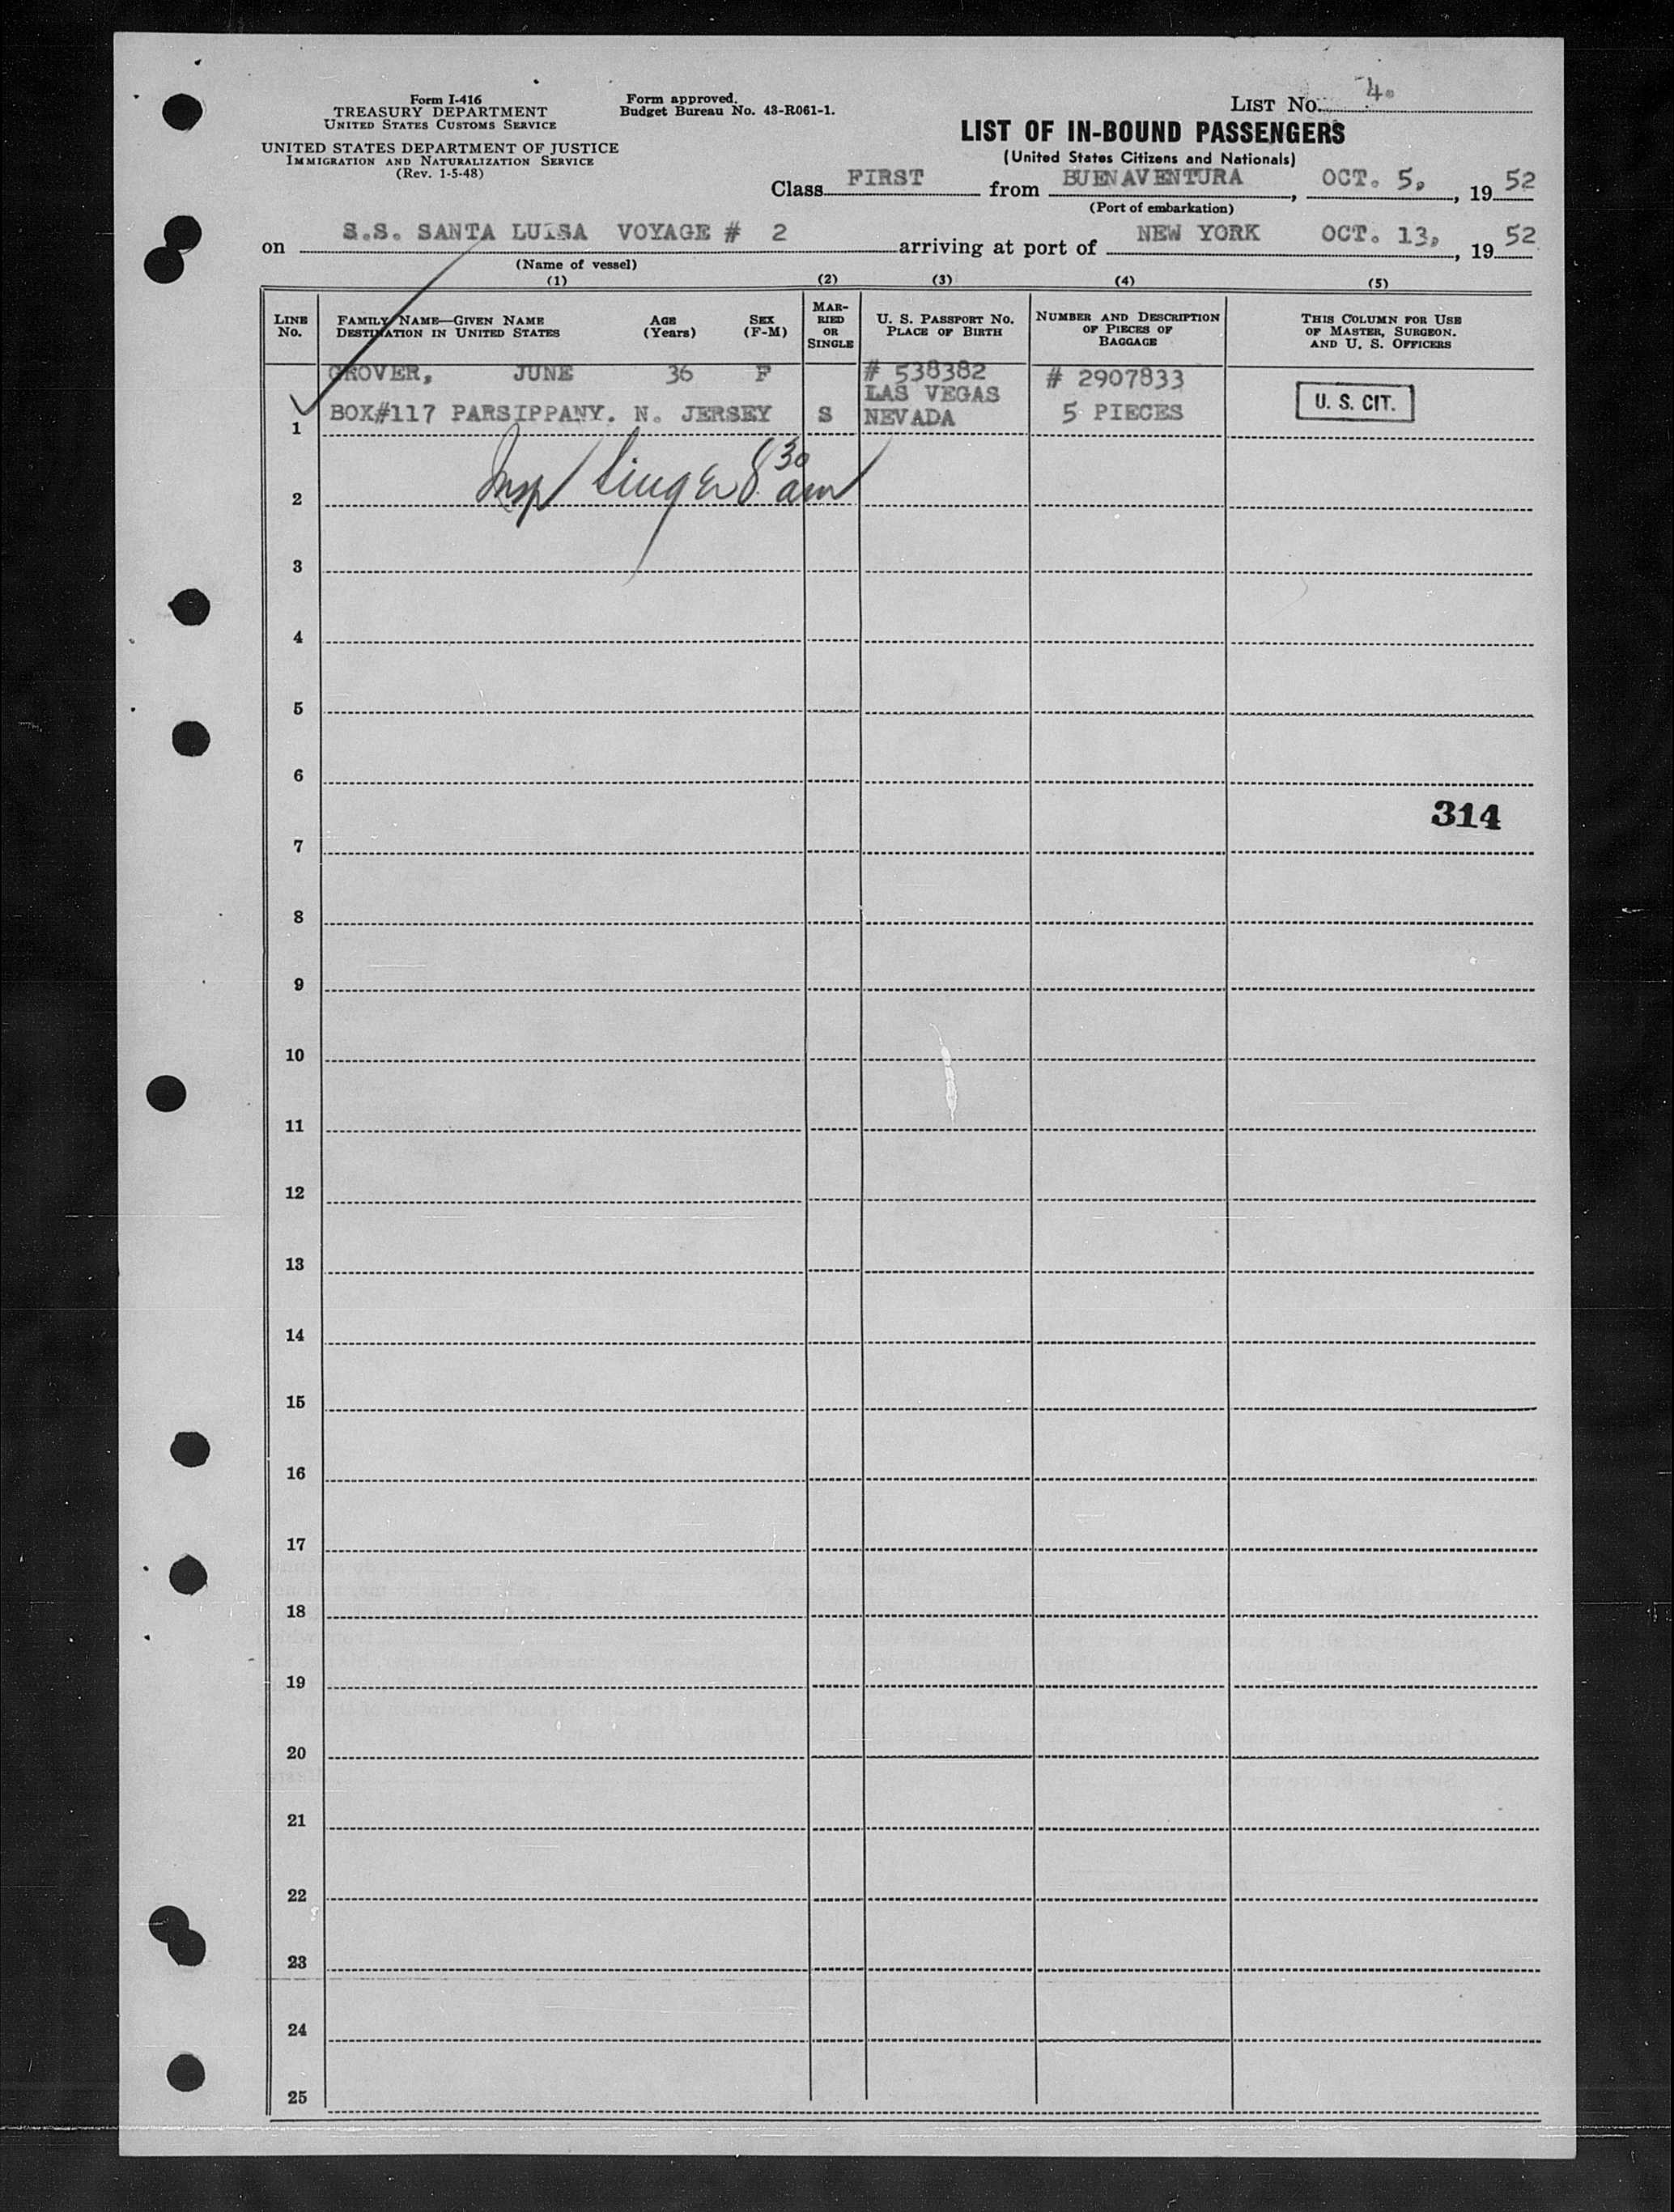 Form I-416
TREASURY DEPARTMENT
UNITED STATES CUSTOMS SERVICE
UNITED STATES DEPARTMENT OF JUSTICE
IMMIGRATION AND NATURALIZATION SERVICE
(Rev. 1-5-48)
Form approved.
Budget Bureau No. 43-R061-1.
LIST No. 4.
LIST OF IN-BOUND PASSENGERS
(United States Citizens and Nationals)
Class FIRST from BUENAVENTURA, OCT. 5, 1952
(Port of embarkation)
on S.S. SANTA LUISA VOYAGE # 2 arriving at port of NEW YORK OCT. 13, 1952
(Name of vessel)
(1) (2) (3) (4) (5)
LINE No.
FAMILY NAME—GIVEN NAME
DESTINATION IN UNITED STATES
AGE (Years)
SEX (F-M)
MARRIED OR SINGLE
U. S. PASSPORT NO.
PLACE OF BIRTH
NUMBER AND DESCRIPTION OF PIECES OF BAGGAGE
THIS COLUMN FOR USE OF MASTER, SURGEON. AND U. S. OFFICERS
GROVER, JUNE 36 F # 538382 # 2907833
LAS VEGAS
1 BOX#117 PARSIPPANY. N. JERSEY S NEVADA 5 PIECES U. S. CIT.
Insp Singer 8 30 am
2
3
4
5
6
314
7
8
9
10
11
12
13
14
15
16
17
18
19
20
21
22
23
24
25